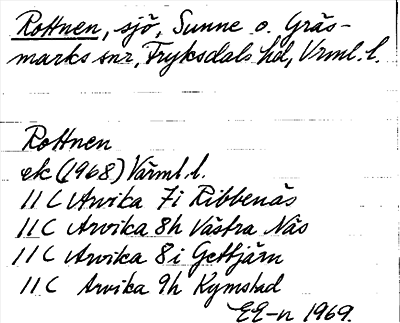 Rottnen, sjö, Sunne o. Gräs-
marks snr, Fryksdals hd, Vrml. l.
Rottnen
ek (1968) Värml. l.
11 C Arvika 7i Ribbenäs
11 C Arvika 8h Västra Näs
11 C Arvika 8i Gettjärn
11 C Arvika 9h Kymstad
EE-n 1969.